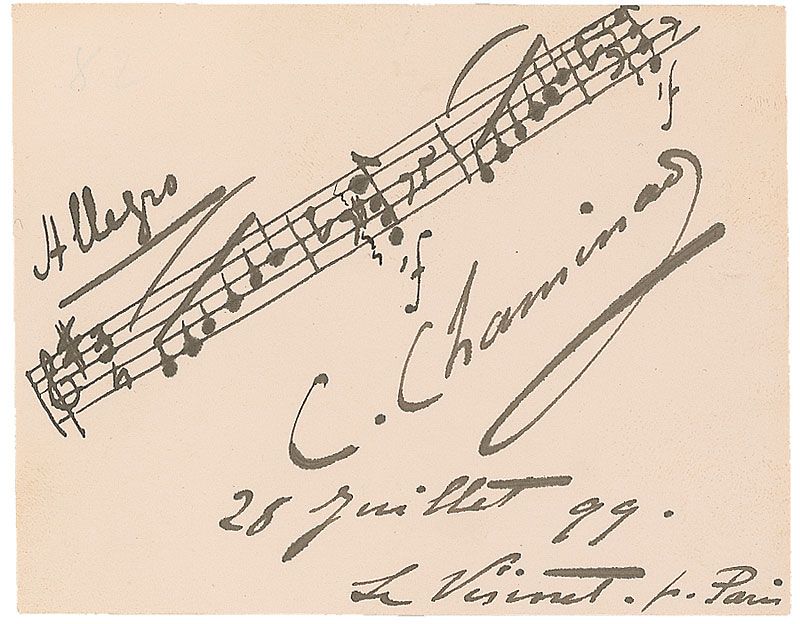 Allegro
C. Chaminade
28 Juillet 99.
Le Vésinet. p. Paris